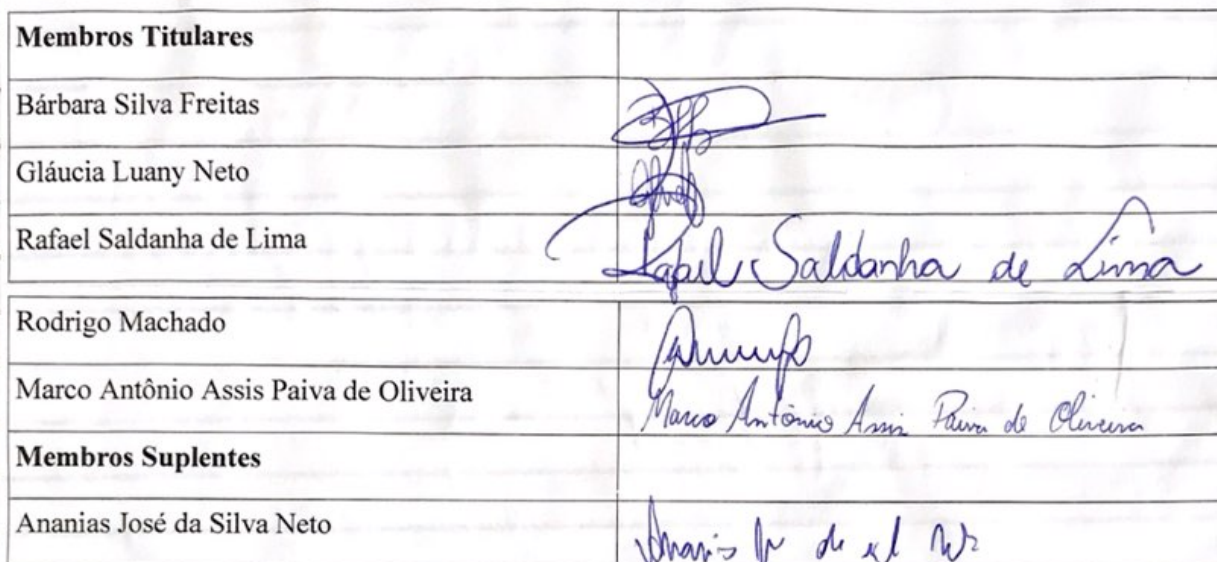 Membros Titulares
Bárbara Silva Freitas
Gláucia Luany Neto
Rafael Saldanha de Lima Rafael Saldanha de Lima
Rodrigo Machado
Marco Antônio Assis Paiva de Oliveira Marco Antônio Assis Paiva de Oliveira
Membros Suplentes
Ananias José da Silva Neto